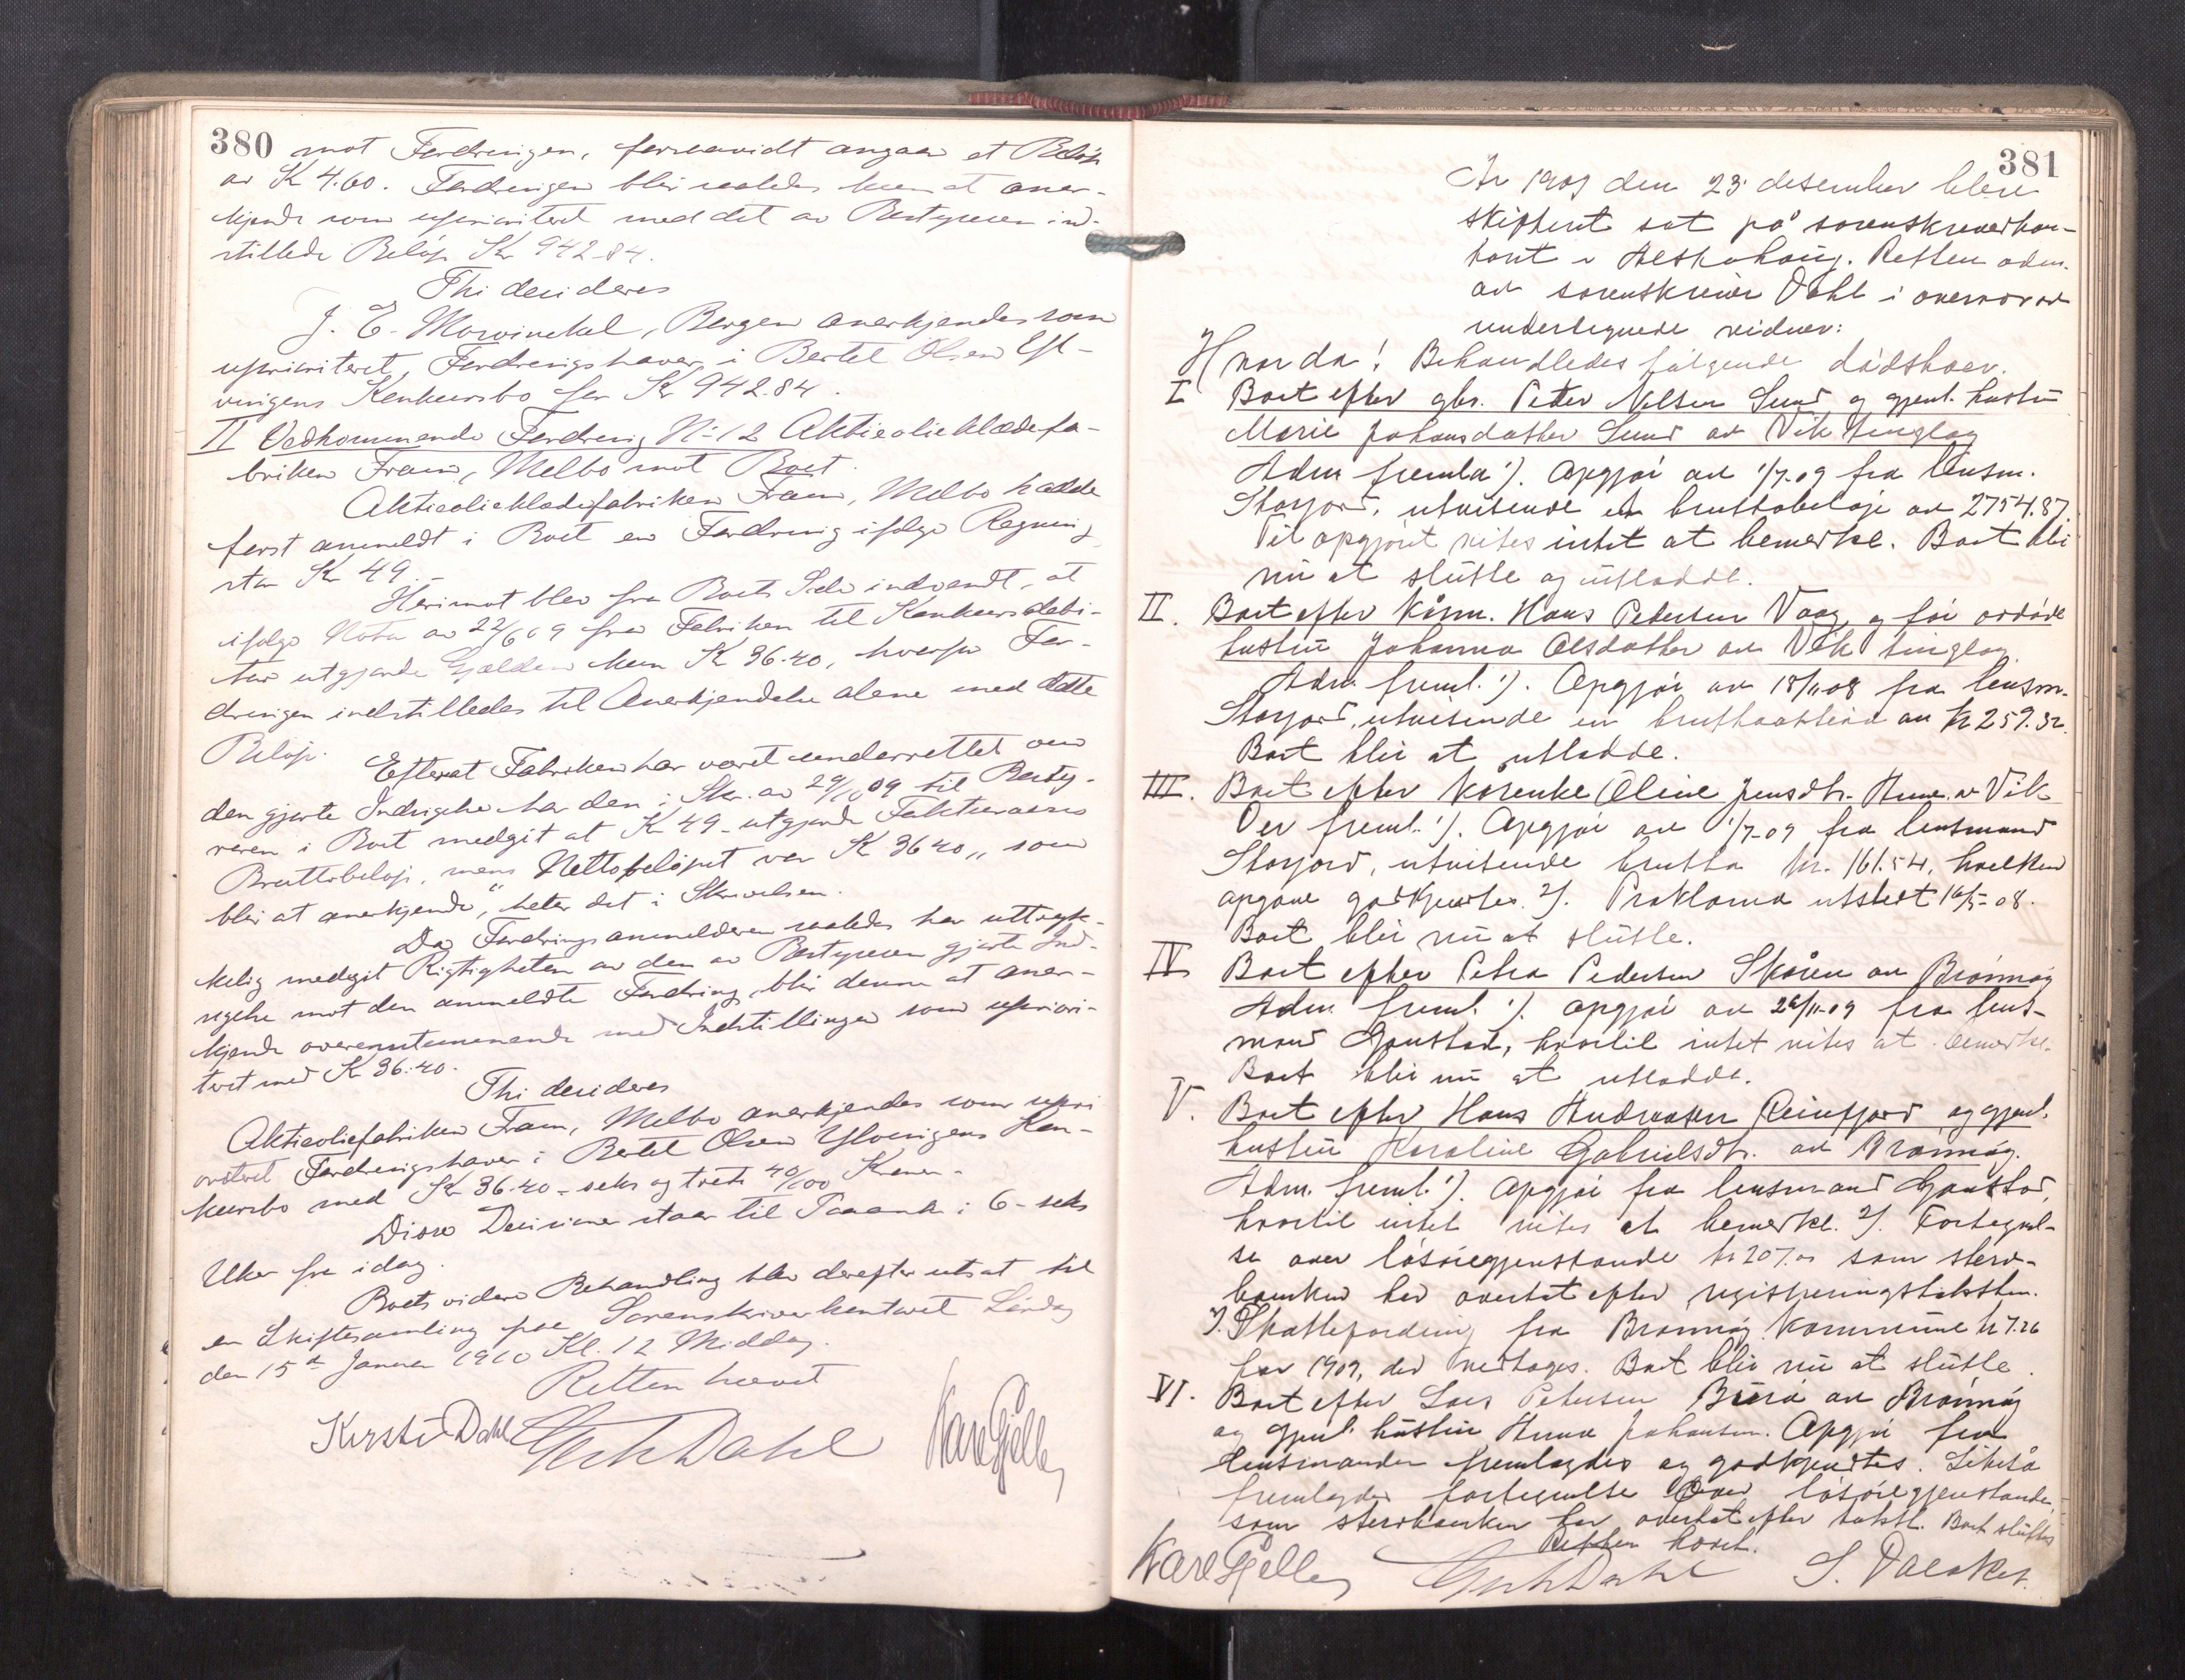 380
mot Fordringen, forsaavidt angaar et Beløp
av Kr 4.60. Fordringen blir saaledes kun at aner-
kjende som uprioritert med det av Bestyreren ind-
stillede Beløp Kr 942.84.
Thi decideres
J. E. Mowinckel, Bergen anerkjendes som
uprioritert Fordringshaver i Bertel Olsen Yl-
vingens Konkursbo for Kr 942.84.
II Vedkommende Fordring No 12 Aktieolieklædefa-
briken Fram, Melbo mot Boet.
Aktieolieklædefabriken Fram, Melbo hadde
først anmeldt i Boet en Fordring ifølge Regning
stor Kr 49.-
Herimot blev fra Boets Side indvendt, at
ifølge Nota av 22/6 09 fra Fabriken til Konkursdebi-
tor utgjorde Gjælden kun Kr 36.40, hvorfor For-
dringen indstilledes til Anerkjendelse alene med dette
Beløp.
Efterat Fabriken har været underrettet om
den gjorte Indsigelse har den i Skr. av 29/10 09 til Besty-
reren i Boet medgit at Kr 49.- utgjorde Fakturaens
Bruttobeløp, mens Nettobeløpet var Kr 36.40 „som
blir at anerkjende", heter det i Skrivelsen.
Da Fordringsanmelderen saaledes har uttryk-
kelig medgit Rigtigheten av den av Bestyreren gjorte Ind-
sigelse mot den anmeldte Fordring, blir denne at aner-
kjende overensstemmende med Indstillingen som upriori-
tert med Kr 36.40.
Thi decideres
Aktieoliefabriken Fram, Melbo anerkjendes som upri
oritert Fordringshaver i Bertel Olsen Ylvingens Kon-
kursbo med Kr 36.40 - seks og tredi 40/100 Kroner -
Disse Decisioner staar til Paaanke i 6 - seks
Uker fra idag.
Boets videre Behandling blev derefter utsat til
en Skiftesamling paa Sorenskriverkontoret Lørdag
den 15de Januar 1910 Kl. 12 Middag.
Retten hævet
Kirsti Dahl Dahl Karl Gjelle
381
År 1909 den 23 desember blev
skifteret sat på sorenskriverkon-
toret i Alstahoug. Retten adm.
av sorenskriver Dahl i overvær av
undertegnede vidner:
Hvorda! Behandledes følgende dødsboer.
I Boet efter gbr. Peter Nilsen Sund og gjenl. hustru
Marie Johansdatter Sund av Vik tinglag
Adm fremla 1). Opgjør av 1/7-09 fra lensm.
Storjord, utvisende et bruttobeløp av 2754.87.
Til opgjøret vites intet at bemerke. Boet blir
nu at slutte og utlodde.
II. Boet efter kårm. Hans Pedersen Vaag og før avdøde
hustru Johanna Olsdatter av Vik tinglag.
Adm. freml. 1). Opgjør av 18/11-08 fra lensm.
Storjord, utvisende en bruttoaktiva av kr 259.32.
Boet blir at utlodde.
III. Boet efter kårenke Oline Jensdtr. av Vik
Der freml. 1). Opgjør av 1/7-09 fra lensmand
Storjord, utvisende brutto kr. 161.54, hvilken
opgave godkjendtes. 2). Proklama utstedt 16/5-08.
Boet blir nu at slutte.
IV Boet efter Petra Pedersen Skåren av Brønnøy
Adm. freml. 1). Opgjør av 26/11-09 fra lens-
mand Gaustad, hvortil intet vites at bemerke.
Boet blir nu at utlodde.
V. Boet efter Hans Andreasen Reinfjord og gjenl.
hustru Karoline Gabrielsdtr. av Brønnøy.
Adm. freml. 1). Opgjør fra lensmand Gaustad,
hvortil intet vites at bemerke. 2). Fortegnel-
se over løsøregjenstande kr 207.00 som sterv-
boenken har overtat efter registreringstaksten.
3. Skattefordring fra Brønnøy kommune kr 7.26
for 1909, der vedtages. Boet blir nu at slutte.
VI. Boet efter Lars Petersen av Brønnøy
og gjenl. hustru Anna Johansen. Opgjør fra
lensmanden fremlagdes og godkjendtes. Likeså
fremlagdes fortegnelse over løsøregjenstande,
som stervboenken har overtat efter takst. Boet sluttes
Retten hævet.
Karl Gjelle Dahl